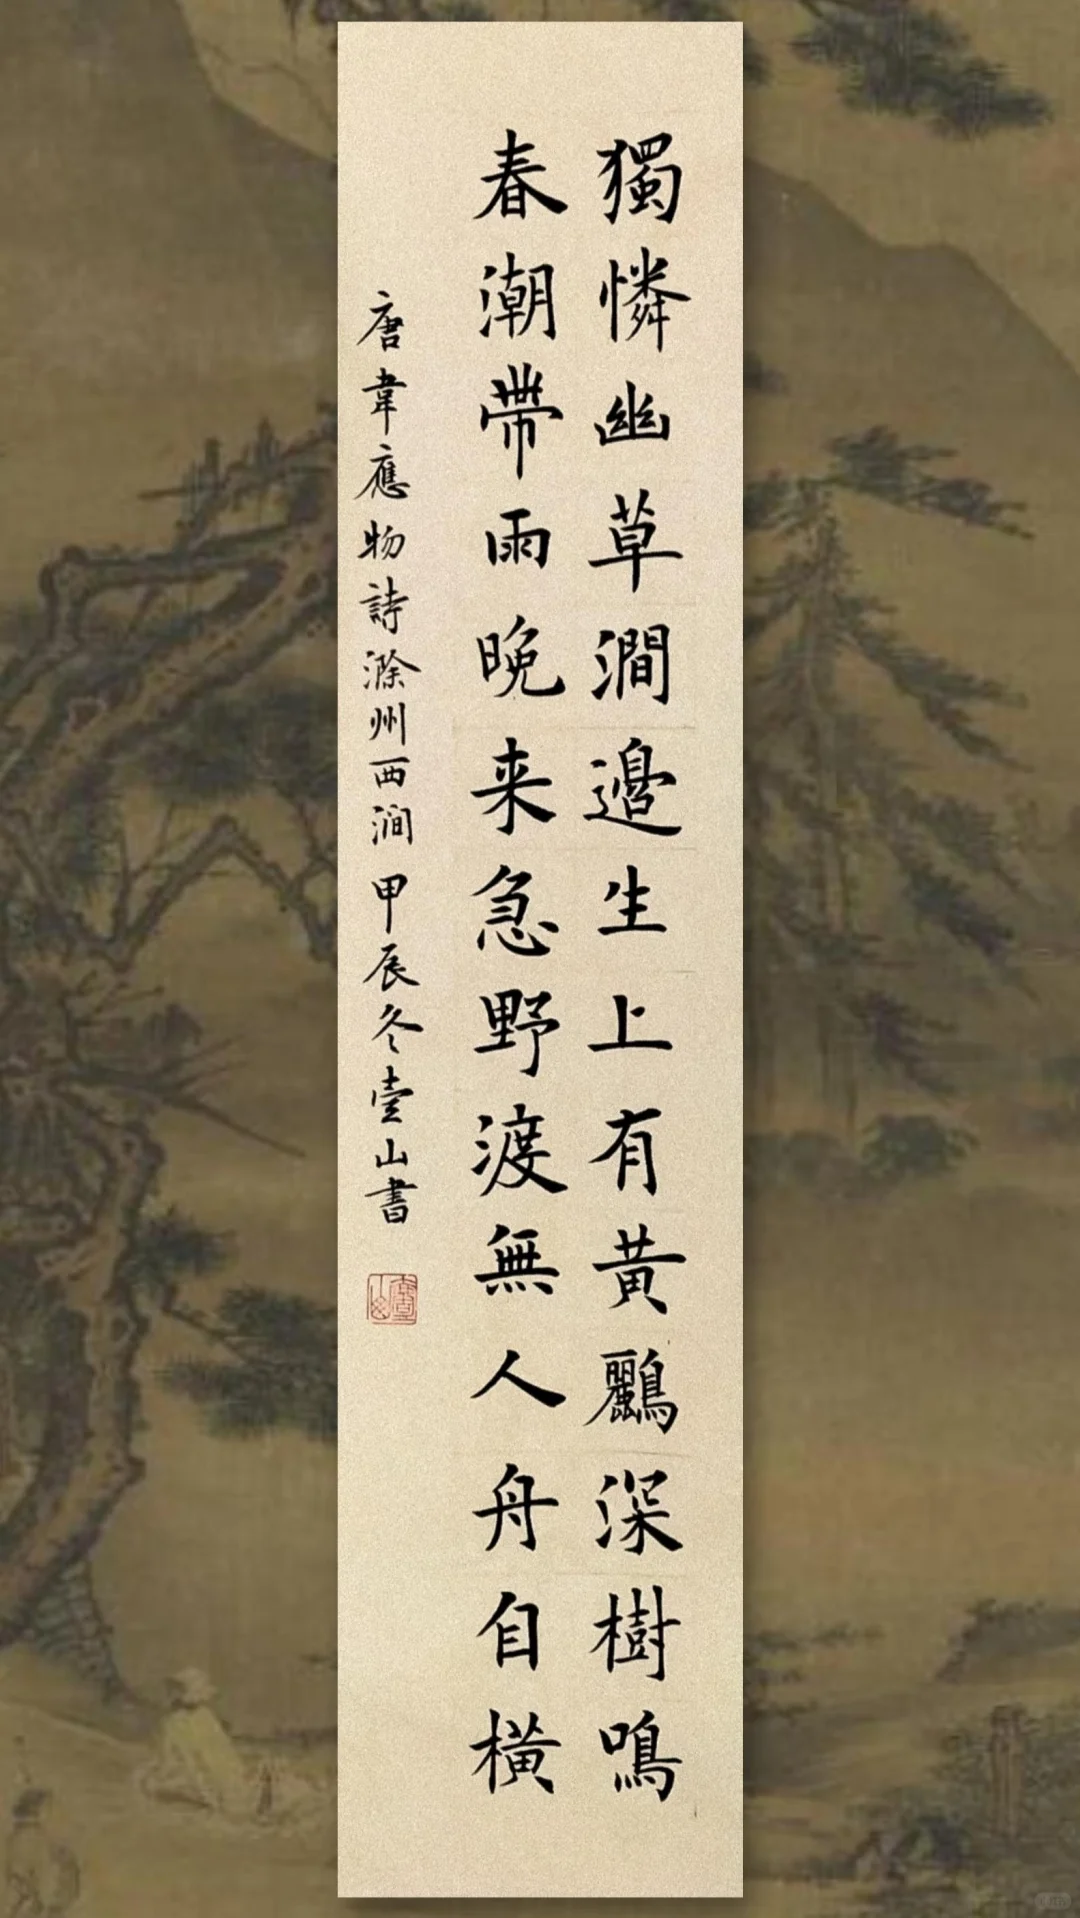 獨憐幽草澗邊生上有黃鸝深樹鳴
春潮帶雨晚来急野渡無人舟自橫
唐韋應物詩滁州西澗甲辰冬壹山書